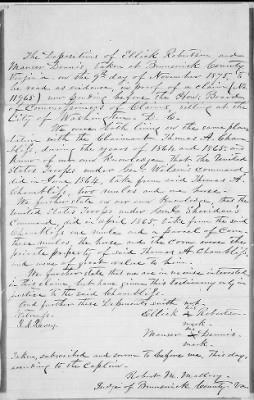 The Depositions of Ellick Robertson and
Manser Dennis taken at Brunswick County
Virginia on the 9th day of November 1875, to
be read as evidence, in proof of a claim (No.
11963) now pending before the Hon. Board
of Commissioners of Claims, sitting at the
City of Washington D. C.
We were both living on the same plan-
tation with the Claimant Thomas A. Cham-
bliss during the years of 1864 and 1865 and
know of our own Knowledge that the United
States Troops under Genl Wilsons Command
did in June 1864, take from said Thomas A.
Chambliss, two mules and one horse.
We further state on our own Knowledge, that the
United States Troops under Genl Sheridan's
Command, did in April 1865 take from the said
Chambliss one mules and a parcel of Corn.
These mules, the horse and the Corn were the
private property of said Thomas A. Chambliss
and were of great value to him.
We further state that we are in no wise interested
in this claim, but have given this testimony only in
justice to the said Chambliss.
And further these Deponents saith not
Witness
his
Ellick X Robertson
mark
his
Manser X Dennis
mark
Taken, subscribed and sworn to before me, this day,
according to the Caption.
Robert M.
Judge of Brunswick County Va.